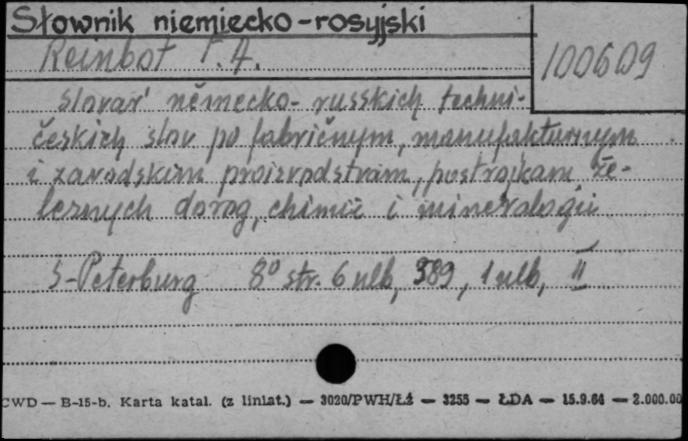 Słownik niemiecko-rosyjski
Reinbot F. A.
100609
Slovar' německo-russkich techni-
českich slov po fabričnym, manufakturnym
i zavodskim proizvodstvam, postrojkam že-
leznych dorog, chimii i mineralogii
S-Peterburg 8° str. 6 nlb, 389, 1 nlb, II
CWD — B-15-b. Karta katal. (z liniat.) — 3020/PWH/Łź — 3255 — ŁDA — 15.9.64 — 2.000.00